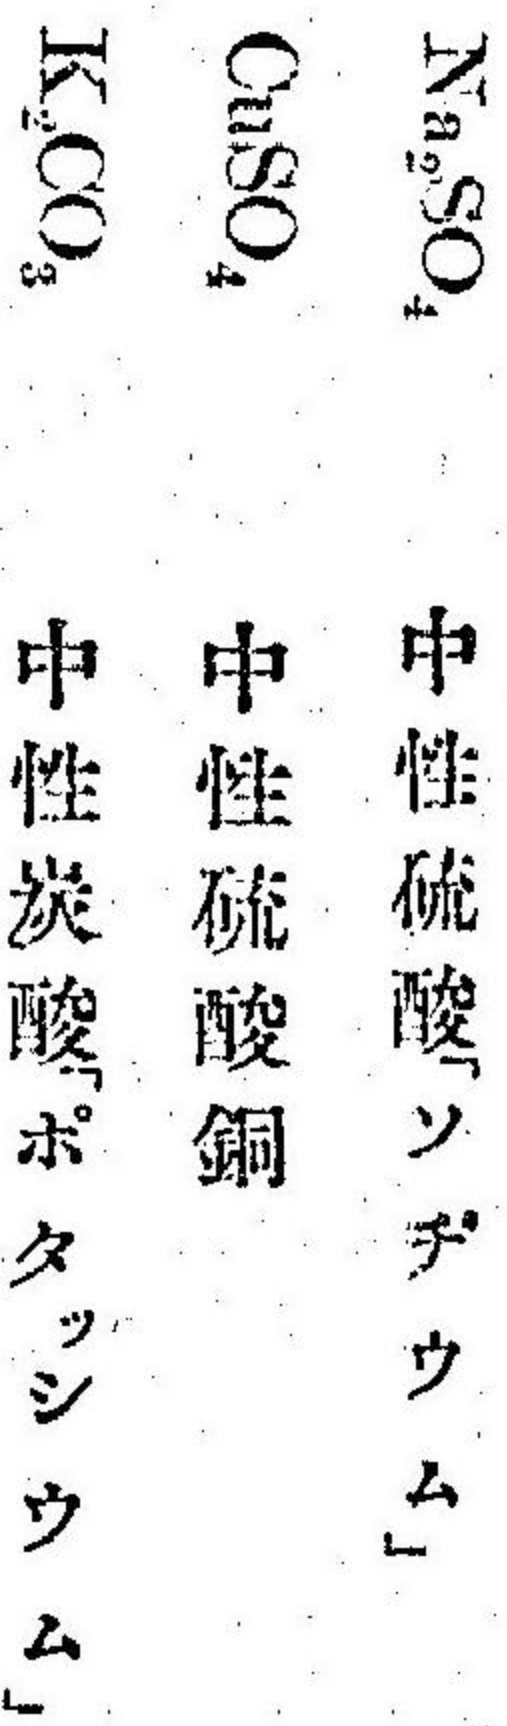 Na₂SO₄ 中性硫酸「ソヂウム」
CuSO₄ 中性硫酸銅
K₂CO₃ 中性炭酸「ポタッシウム」